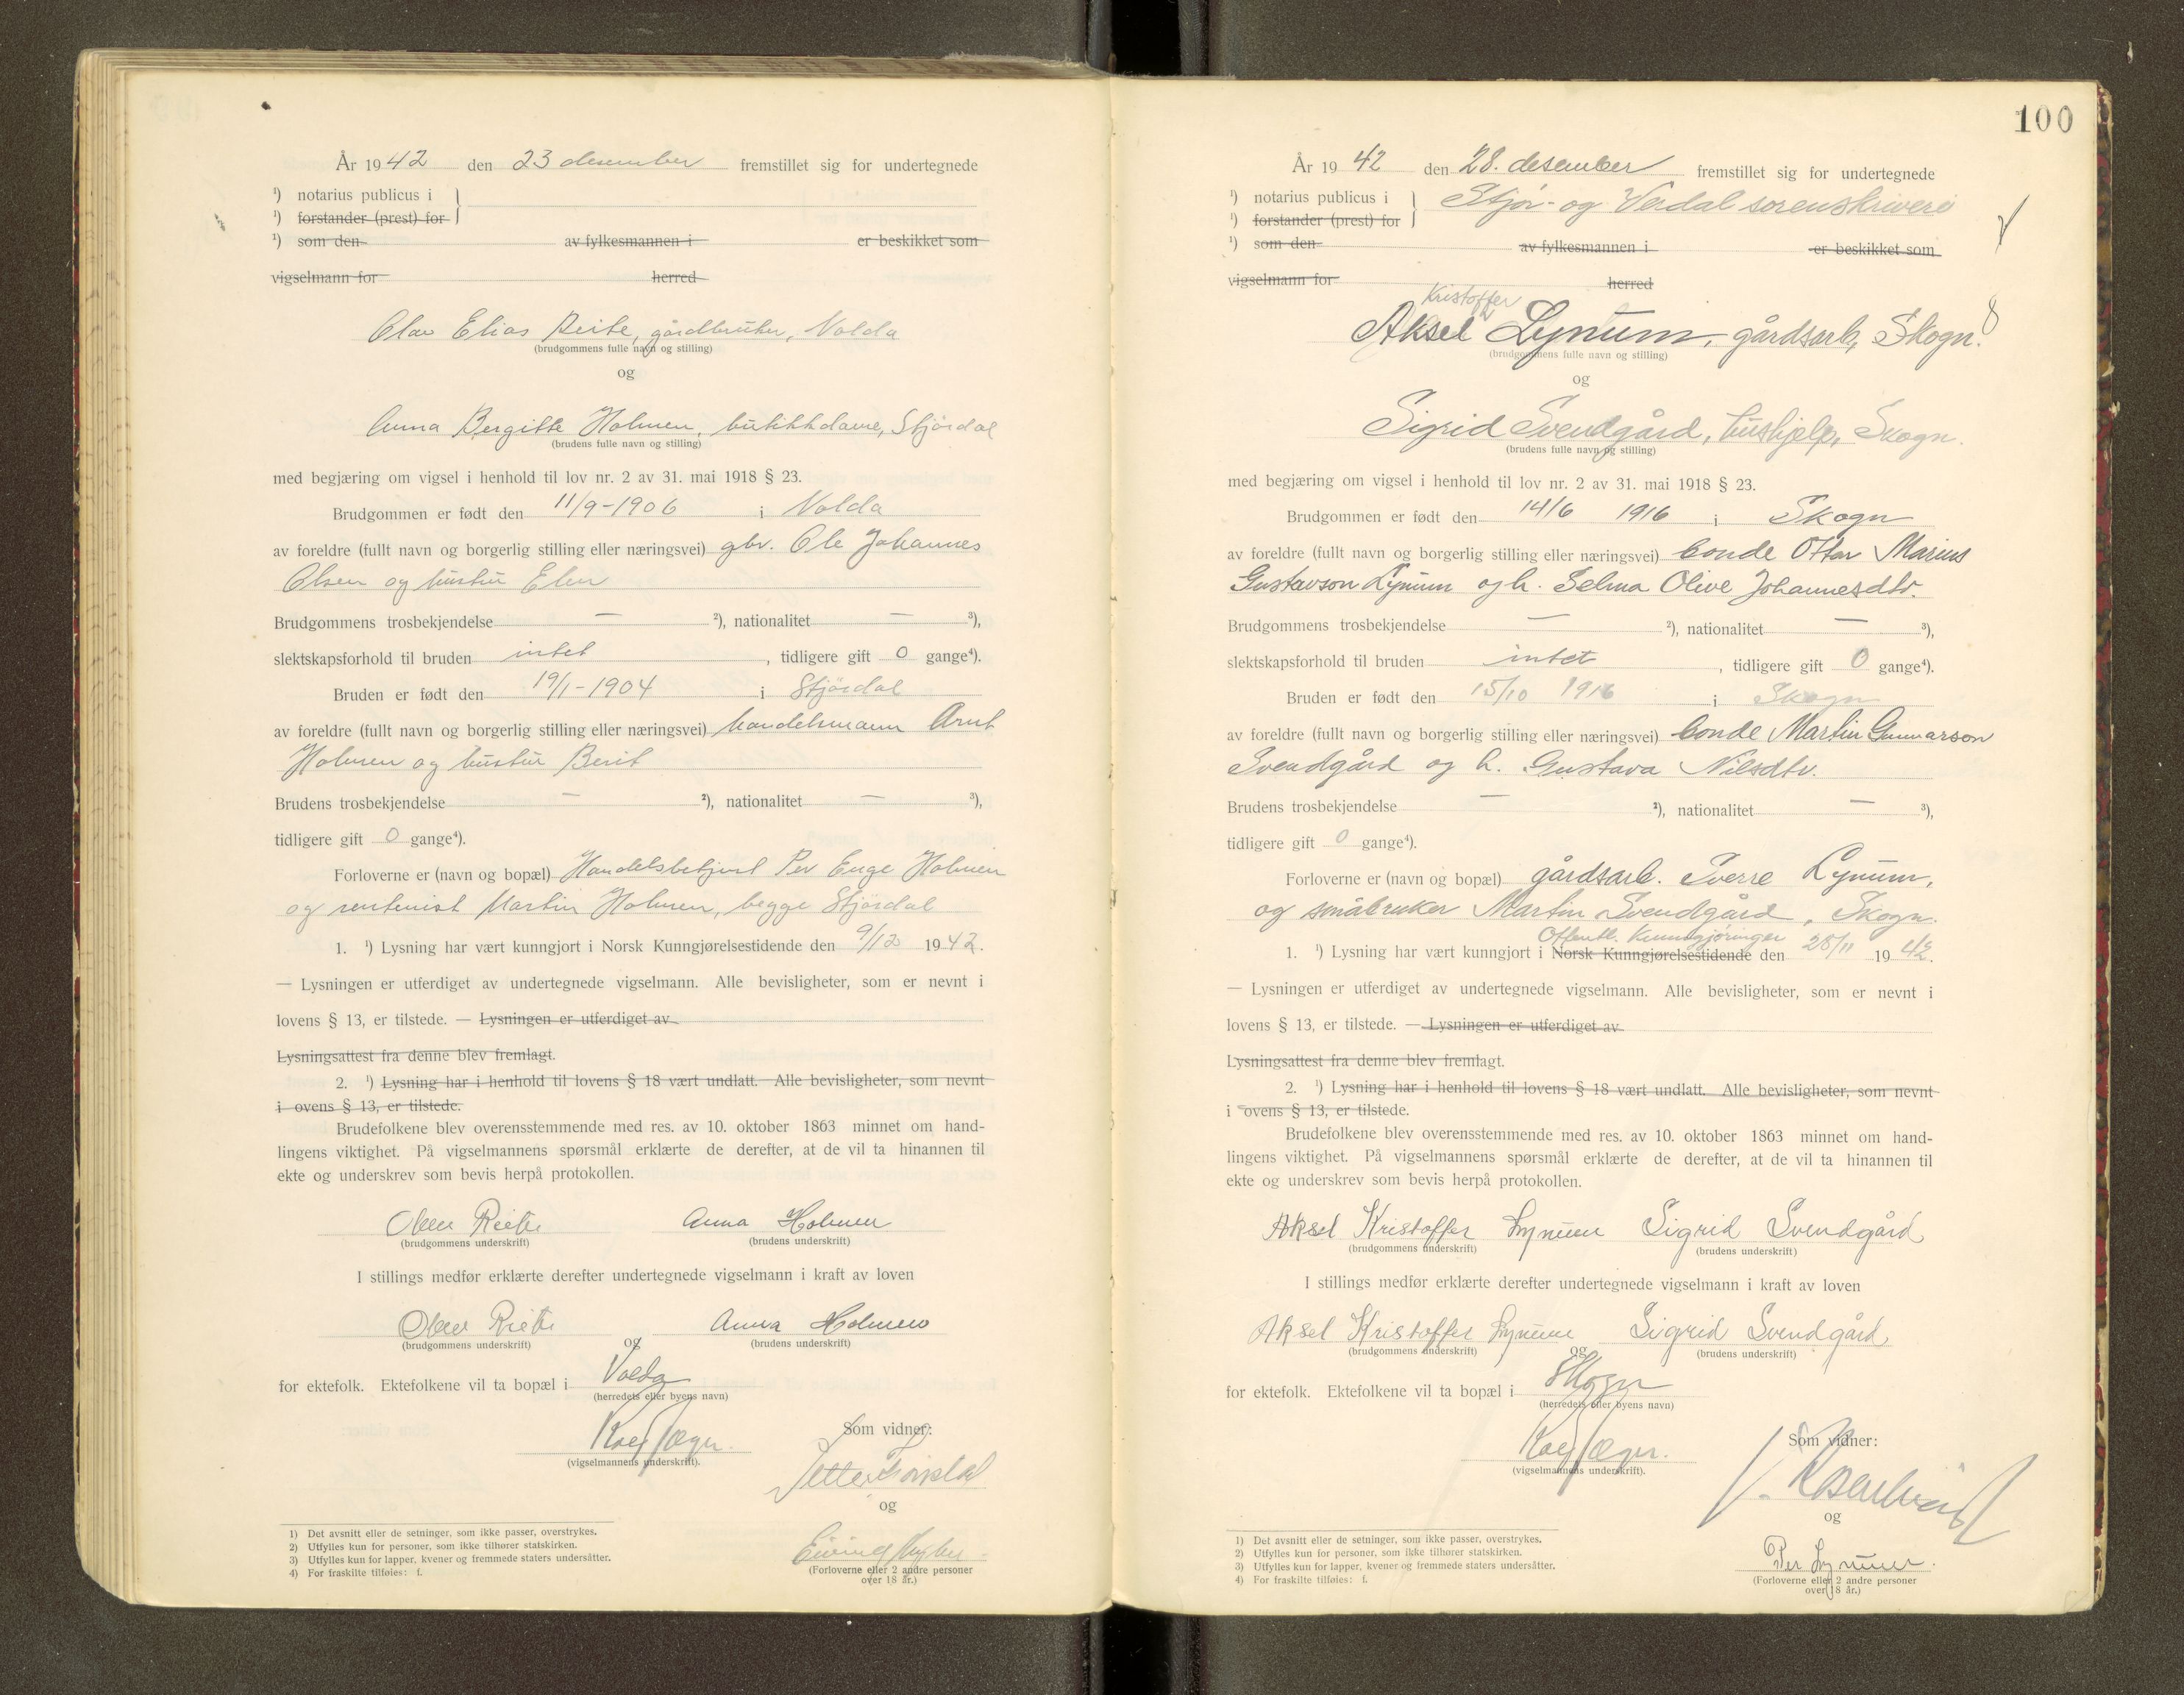 År 1942 den 23 desember fremstillet sig for undertegnede
¹) notarius publicus i
¹) forstander (prest) for
¹) som den av fylkesmannen i er beskikket som
vigselmann for herred
Olav Elias Reite, gårdbruker, Volda
(brudgommens fulle navn og stilling)
og
Anna Bergitte Holmen, butikkdame, Stjørdal
(brudens fulle navn og stilling)
med begjæring om vigsel i henhold til lov nr. 2 av 31. mai 1918 § 23.
Brudgommen er født den 11/9-1906 i Volda
av foreldre (fullt navn og borgerlig stilling eller næringsvei) gbr. Ole Johannes
Olsen og hustru Elen
Brudgommens trosbekjendelse — ²), nationalitet — ³),
slektskapsforhold til bruden intet, tidligere gift 0 gange⁴).
Bruden er født den 19/1-1904 i Stjørdal
av foreldre (fullt navn og borgerlig stilling eller næringsvei) handelsmann Arnt
Holmen og hustru Berit
Brudens trosbekjendelse — ²), nationalitet — ³),
tidligere gift 0 gange⁴).
Forloverne er (navn og bopæl) Handelsbetjent Per Enge Holmen
og rentenist Martin Holmen, begge Stjørdal
1. ¹) Lysning har vært kunngjort i Norsk Kunngjørelsestidende den 9/12 1942.
— Lysningen er utferdiget av undertegnede vigselmann. Alle bevisligheter, som er nevnt i
lovens § 13, er tilstede. — Lysningen er utferdiget av
Lysningsattest fra denne blev fremlagt.
2. ¹) Lysning har i henhold til lovens § 18 vært undlatt. Alle bevisligheter, som nevnt
i ovens § 13, er tilstede.
Brudefolkene blev overensstemmende med res. av 10. oktober 1863 minnet om hand-
lingens viktighet. På vigselmannens spørsmål erklærte de derefter, at de vil ta hinannen til
ekte og underskrev som bevis herpå protokollen.
Olav Reite Anna Holmen
(brudgommens underskrift) (brudens underskrift)
I stillings medfør erklærte derefter undertegnede vigselmann i kraft av loven
Olav Reite og Anna Holmen
(brudgommens underskrift) (brudens underskrift)
for ektefolk. Ektefolkene vil ta bopæl i Volda
(herredets eller byens navn)
Som vidner:
(vigselmannens underskrift).
og
Eivind
(Forloverne eller 2 andre personer
over 18 år.)
1) Det avsnitt eller de setninger, som ikke passer, overstrykes.
2) Utfylles kun for personer, som ikke tilhører statskirken.
3) Utfylles kun for lapper, kvener og fremmede staters undersåtter.
4) For fraskilte tilføies: f.
100
År 1942 den 28. desember fremstillet sig for undertegnede
¹) notarius publicus i Stjør- og Verdal sorenskriveri
¹) forstander (prest) for
¹) som den av fylkesmannen i er beskikket som
vigselmann for herred
Kristoffer
Aksel Lynum, gårdsarb, Skogn.
(brudgommens fulle navn og stilling)
og
Sigrid Svendgård, hushjelp, Skogn.
(brudens fulle navn og stilling)
med begjæring om vigsel i henhold til lov nr. 2 av 31. mai 1918 § 23.
Brudgommen er født den 14/6 1916 i Skogn
av foreldre (fullt navn og borgerlig stilling eller næringsvei) bonde Ottar Marius
Gustavson Lynum og h. Selma Olive Johannesdtr.
Brudgommens trosbekjendelse — ²), nationalitet — ³),
slektskapsforhold til bruden intet, tidligere gift 0 gange⁴).
Bruden er født den 15/10 1916 i Skogn
av foreldre (fullt navn og borgerlig stilling eller næringsvei) bonde Martin Gunnarson
Svendgård og h. Gustava Nilsdtr.
Brudens trosbekjendelse — ²), nationalitet — ³),
tidligere gift 0 gange⁴).
Forloverne er (navn og bopæl) gårdsarb. Sverre Lynum,
og småbruker Martin Svendgård, Skogn.
Offentl. Kunngjøringer
1. ¹) Lysning har vært kunngjort i Norsk Kunngjørelsestidende den 25/11 1942.
— Lysningen er utferdiget av undertegnede vigselmann. Alle bevisligheter, som er nevnt i
lovens § 13, er tilstede. — Lysningen er utferdiget av
Lysningsattest fra denne blev fremlagt.
2. ¹) Lysning har i henhold til lovens § 18 vært undlatt. Alle bevisligheter, som nevnt
i ovens § 13, er tilstede.
Brudefolkene blev overensstemmende med res. av 10. oktober 1863 minnet om hand-
lingens viktighet. På vigselmannens spørsmål erklærte de derefter, at de vil ta hinannen til
ekte og underskrev som bevis herpå protokollen.
Aksel Kristoffer Lynum Sigrid Svendgård
(brudgommens underskrift) (brudens underskrift)
I stillings medfør erklærte derefter undertegnede vigselmann i kraft av loven
Aksel Kristoffer Lynum og Sigrid Svendgård
(brudgommens underskrift) (brudens underskrift)
for ektefolk. Ektefolkene vil ta bopæl i Skogn
(herredets eller byens navn)
Som vidner:
(vigselmannens underskrift).
og
Per Lynum.
(Forloverne eller 2 andre personer
over 18 år.)
1) Det avsnitt eller de setninger, som ikke passer, overstrykes.
2) Utfylles kun for personer, som ikke tilhører statskirken.
3) Utfylles kun for lapper, kvener og fremmede staters undersåtter.
4) For fraskilte tilføies: f.